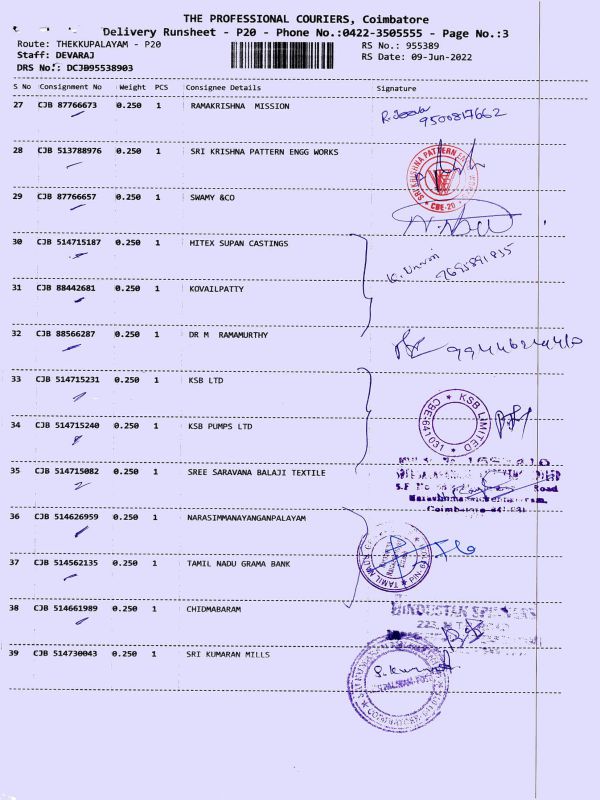 THE PROFESSIONAL COURIERS, Coimbatore
Delivery Runsheet - P20 - Phone No.:0422-3505555 - Page No.:3
Route: THEKKUPALAYAM - P20 RS No.: 955389
Staff: DEVARAJ RS Date: 09-Jun-2022
DRS No.: DCJB95538903
S No Consignment No Weight PCS Consignee Details Signature
27 CJB 87766673 0.250 1 RAMAKRISHNA MISSION
9500817662
28 CJB 513788976 0.250 1 SRI KRISHNA PATTERN ENGG WORKS
SRI KRISHNA PATTERN
CBE-20
29 CJB 87766657 0.250 1 SWAMY &CO
30 CJB 514715187 0.250 1 HITEX SUPAN CASTINGS
31 CJB 88442681 0.250 1 KOVAILPATTY
32 CJB 88566287 0.250 1 DR M RAMAMURTHY
33 CJB 514715231 0.250 1 KSB LTD
KSB LIMITED
CBE-641031
34 CJB 514715240 0.250 1 KSB PUMPS LTD
35 CJB 514715082 0.250 1 SREE SARAVANA BALAJI TEXTILE
S.F. No Road
36 CJB 514626959 0.250 1 NARASIMMANAYANGANPALAYAM
37 CJB 514562135 0.250 1 TAMIL NADU GRAMA BANK
TAMIL
38 CJB 514661989 0.250 1 CHIDMABARAM
HINDUSTAN
223,
39 CJB 514730043 0.250 1 SRI KUMARAN MILLS